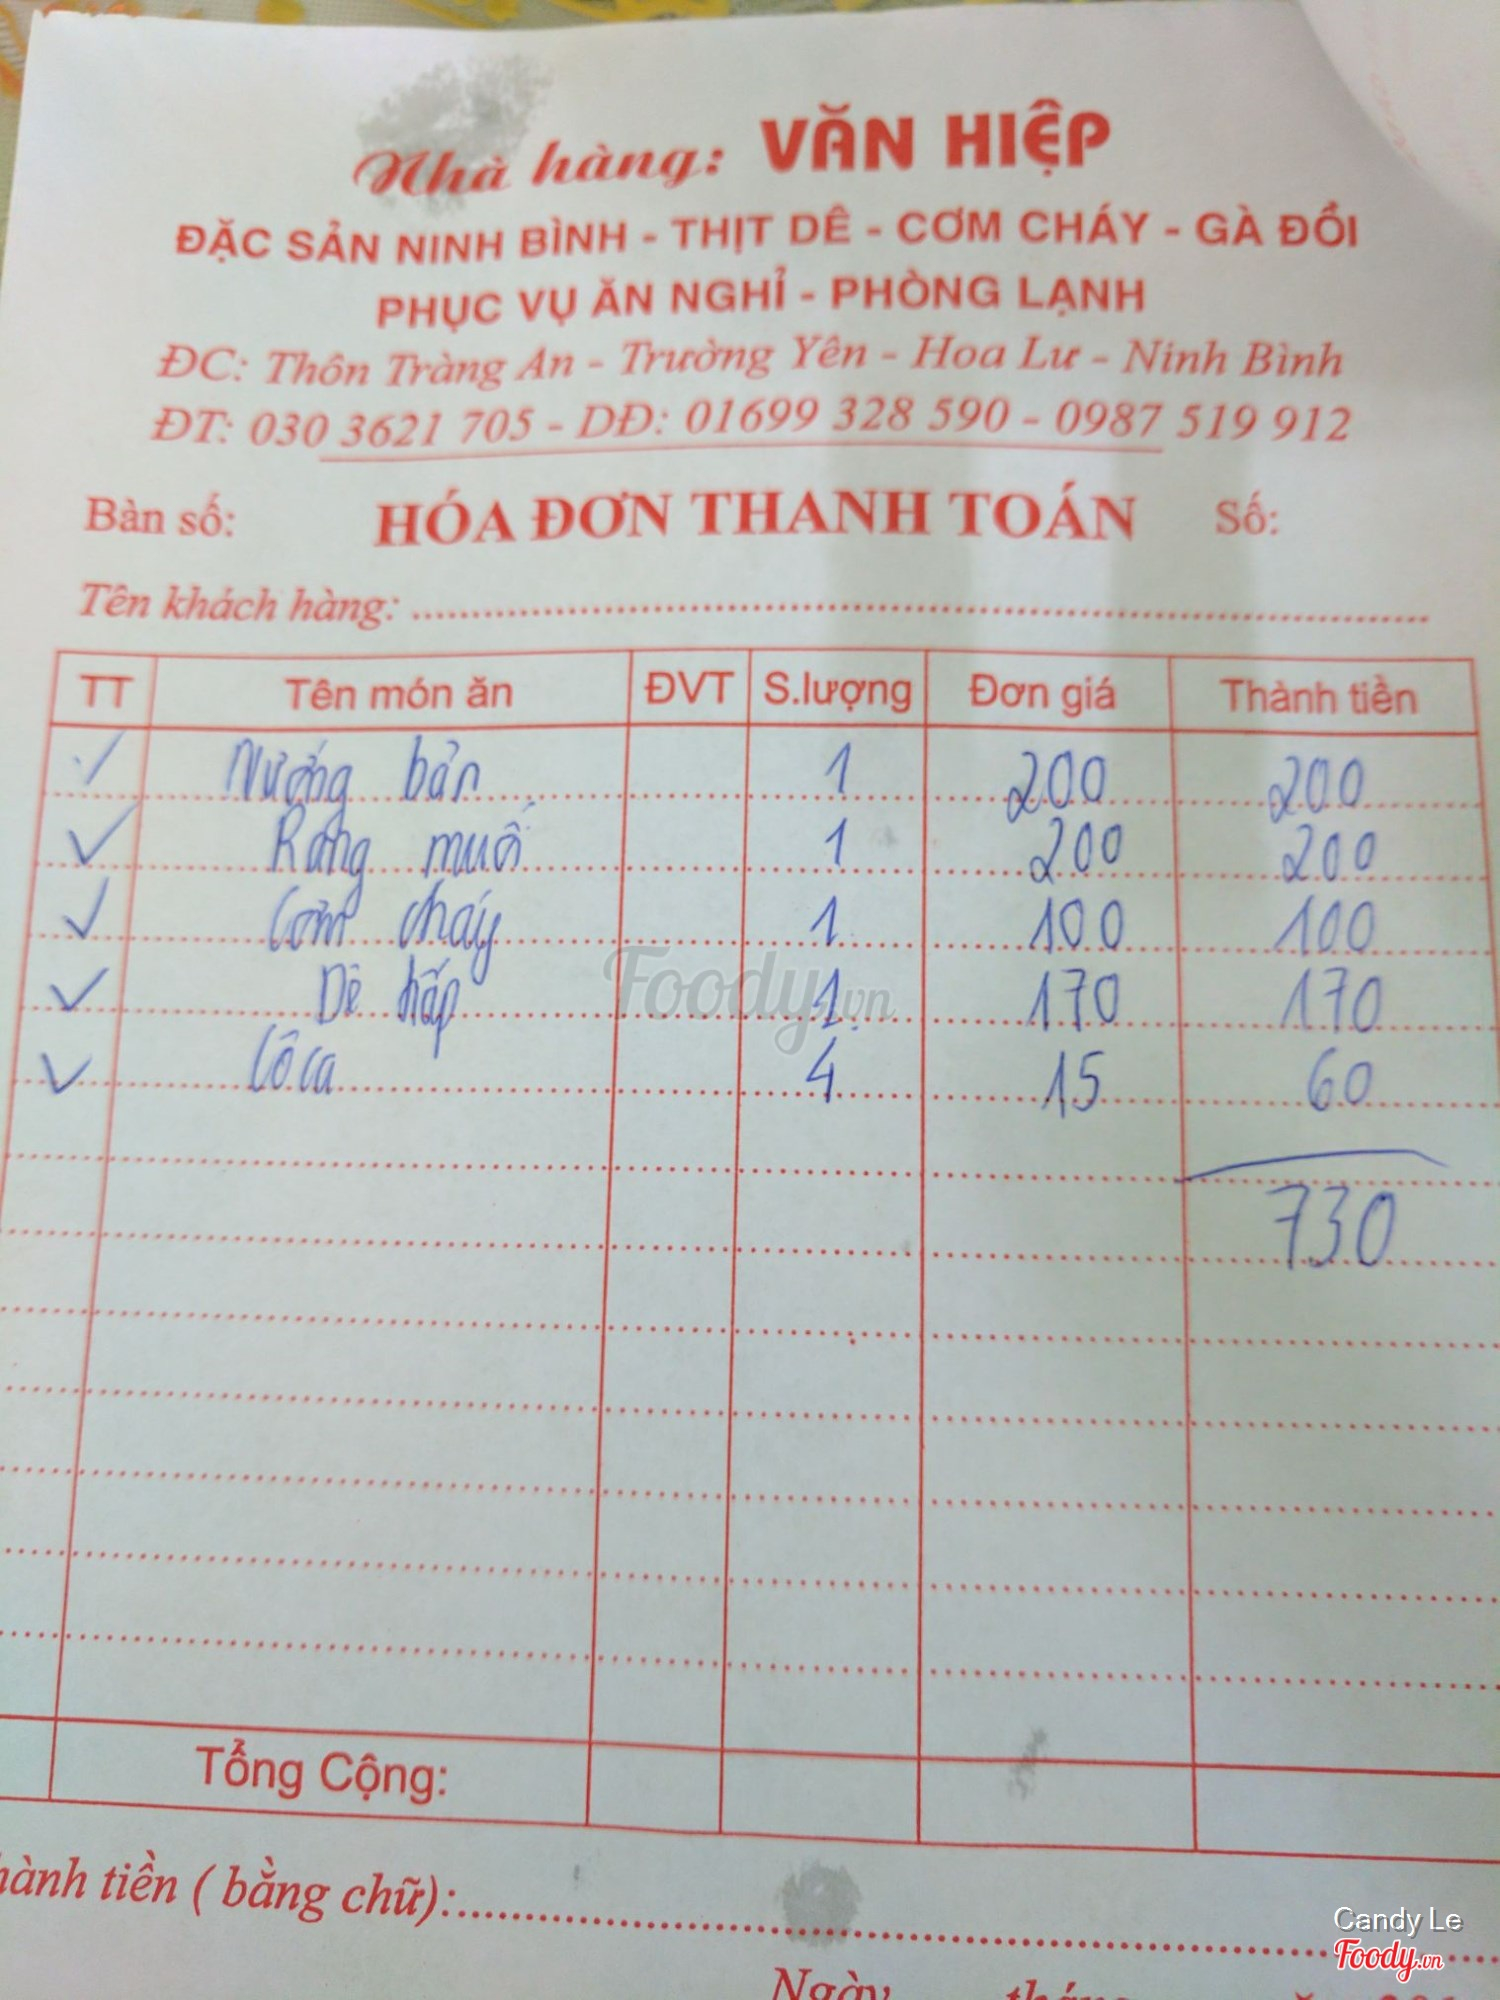 Nhà hàng: VĂN HIỆP
ĐẶC SẢN NINH BÌNH - THỊT DÊ - CƠM CHÁY - GÀ ĐỒI
PHỤC VỤ ĂN NGHỈ - PHÒNG LẠNH
ĐC: Thôn Tràng An - Trường Yên - Hoa Lư - Ninh Bình
ĐT: 030 3621 705 - DĐ: 01699 328 590 - 0987 519 912
Bàn số: HÓA ĐƠN THANH TOÁN Số:
Tên khách hàng:
TT Tên món ăn ĐVT S.lượng Đơn giá Thành tiền
✓ Nướng bản 1 200 200
✓ Rang muối 1 200 200
✓ Cơm cháy 1 100 100
✓ Dê hấp 1 170 170
✓ Côca 4 15 60
730
Foody.vn
Tổng Cộng:
hành tiền ( bằng chữ):
Candy Le
Foody.vn
Ngày tháng